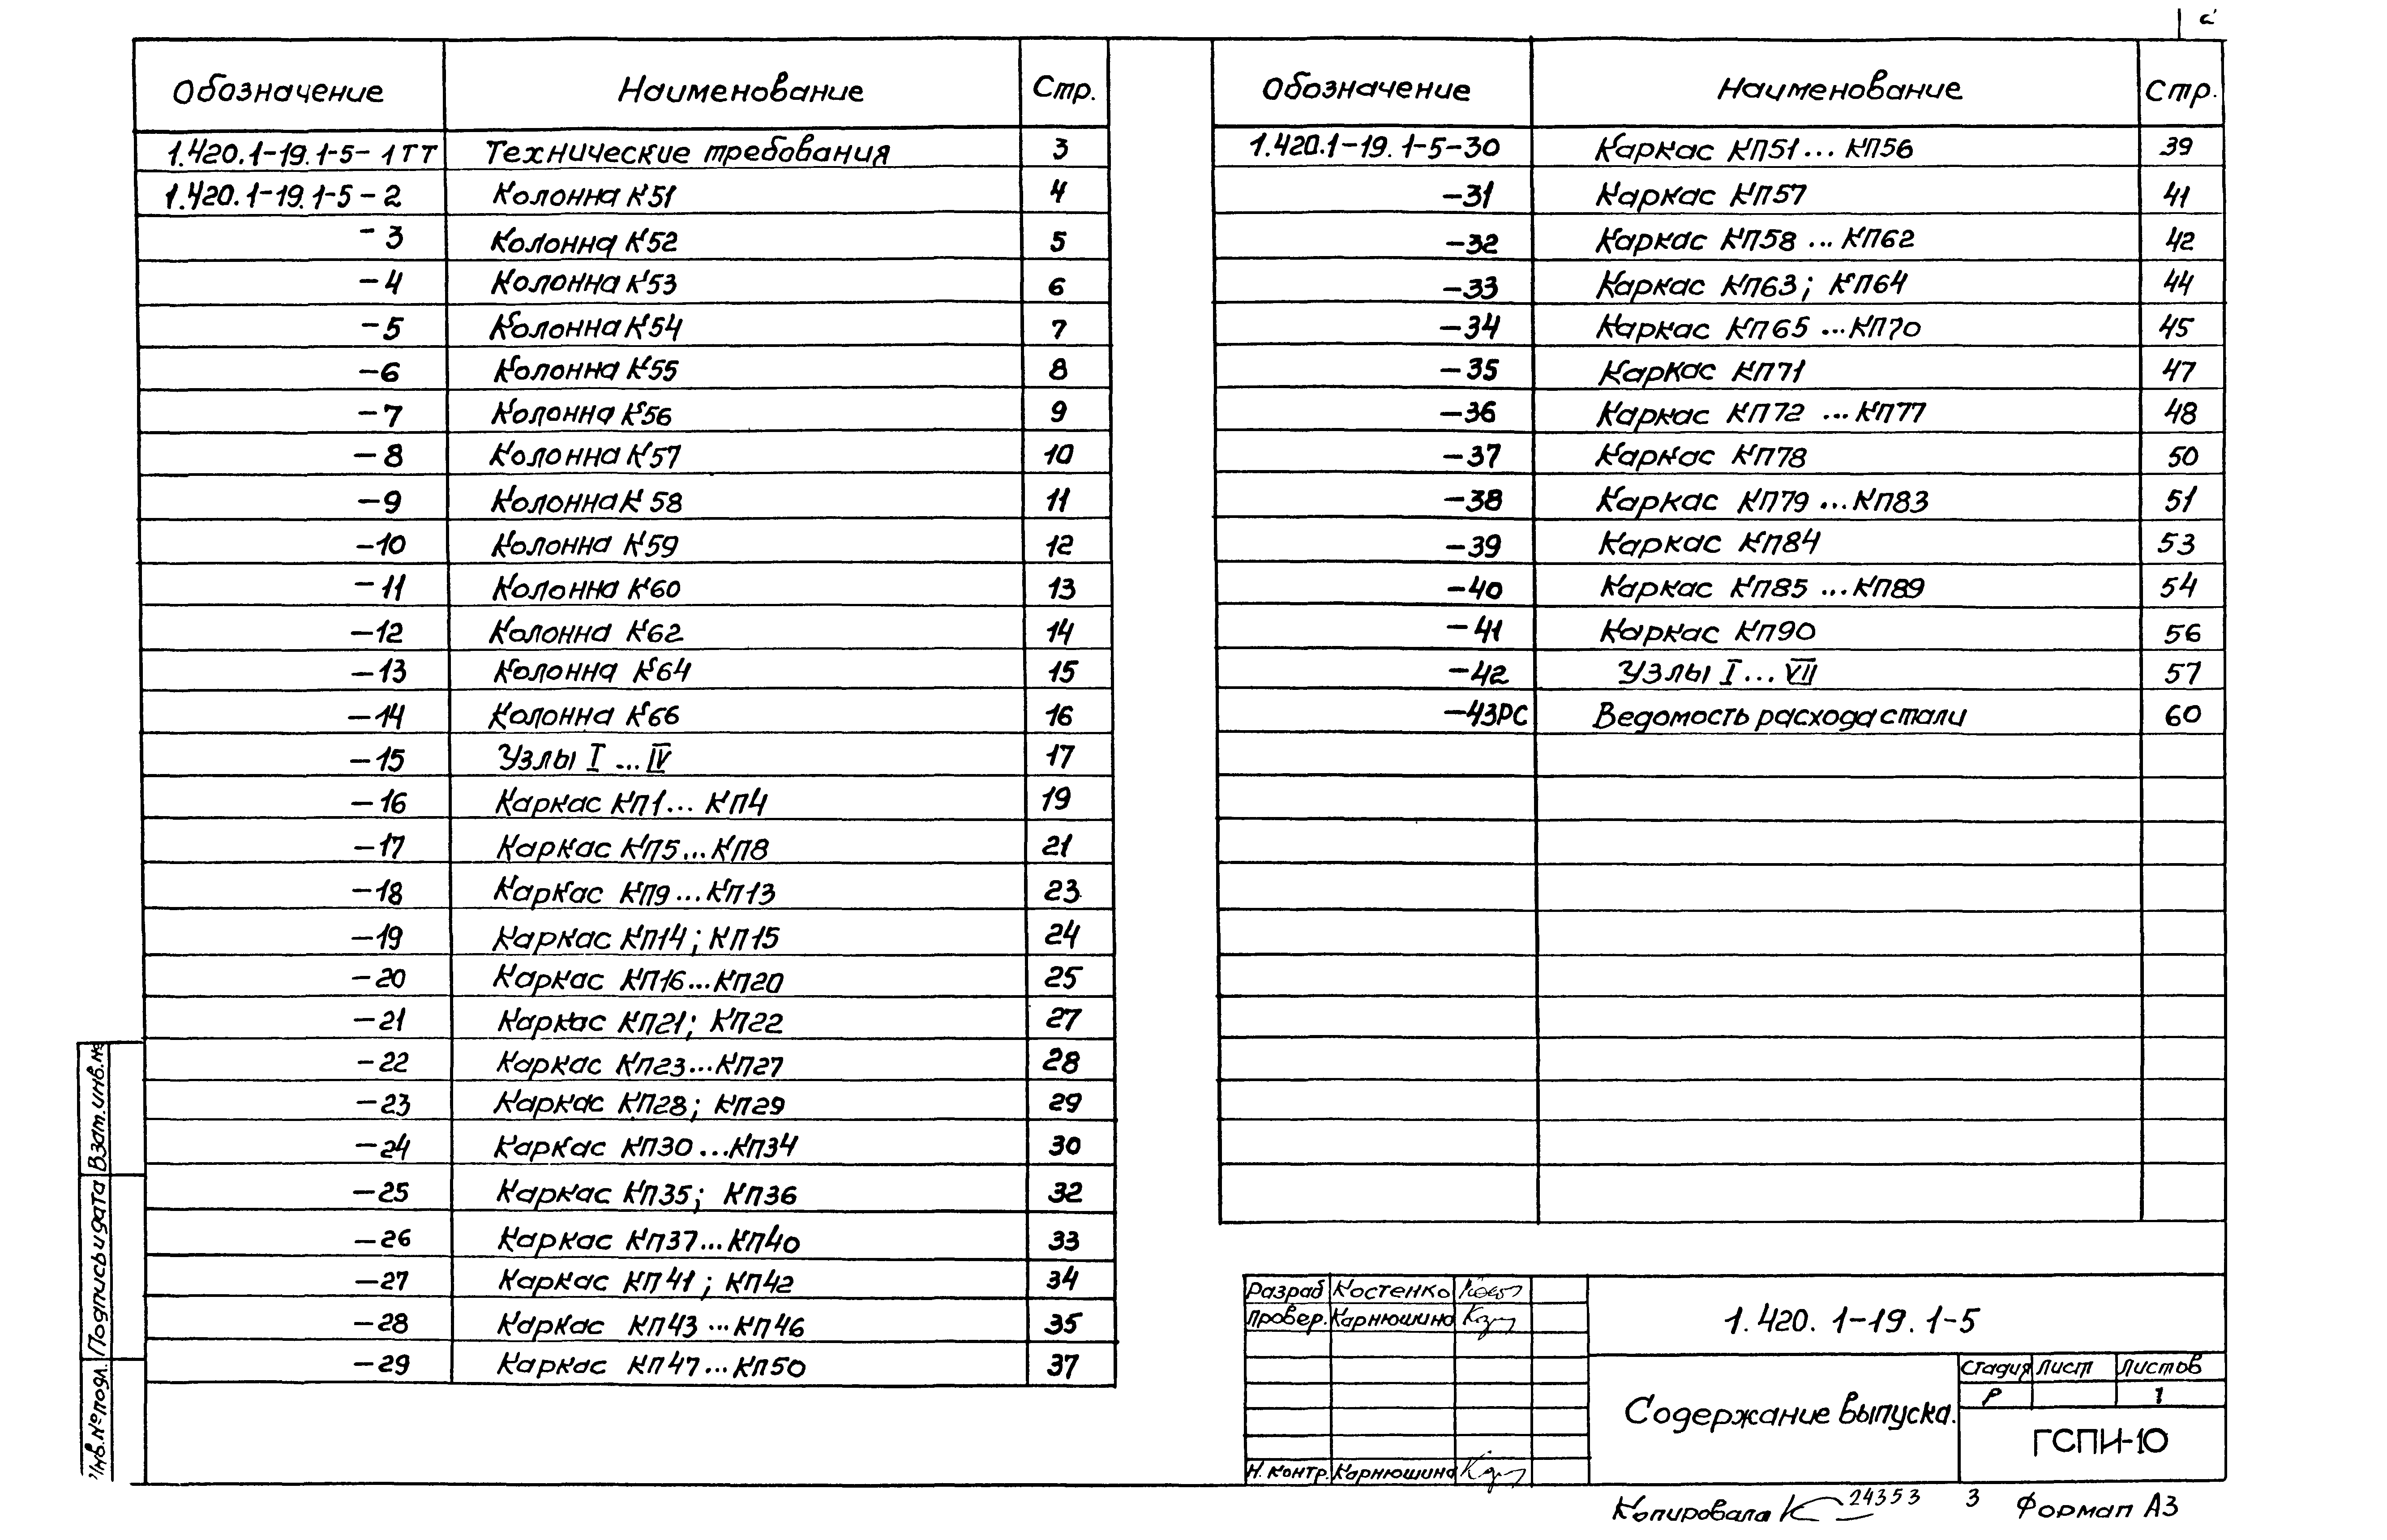 Обозначение Наименование Стр.
1.420.1-19.1-5-1ТТ Технические требования 3
1.420.1-19.1-5-2 Колонна К51 4
-3 Колонна К52 5
-4 Колонна К53 6
-5 Колонна К54 7
-6 Колонна К55 8
-7 Колонна К56 9
-8 Колонна К57 10
-9 Колонна К58 11
-10 Колонна К59 12
-11 Колонна К60 13
-12 Колонна К62 14
-13 Колонна К64 15
-14 Колонна К66 16
-15 Узлы I...IV 17
-16 Каркас КП1...КП4 19
-17 Каркас КП5...КП8 21
-18 Каркас КП9...КП13 23
-19 Каркас КП14; КП15 24
-20 Каркас КП16...КП20 25
-21 Каркас КП21; КП22 27
-22 Каркас КП23...КП27 28
-23 Каркас КП28; КП29 29
-24 Каркас КП30...КП34 30
-25 Каркас КП35; КП36 32
-26 Каркас КП37...КП40 33
-27 Каркас КП41; КП42 34
-28 Каркас КП43...КП46 35
-29 Каркас КП47...КП50 37
Обозначение Наименование Стр.
1.420.1-19.1-5-30 Каркас КП51...КП56 39
-31 Каркас КП57 41
-32 Каркас КП58...КП62 42
-33 Каркас КП63; КП64 44
-34 Каркас КП65...КП70 45
-35 Каркас КП71 47
-36 Каркас КП72...КП77 48
-37 Каркас КП78 50
-38 Каркас КП79...КП83 51
-39 Каркас КП84 53
-40 Каркас КП85...КП89 54
-41 Каркас КП90 56
-42 Узлы I...VII 57
-43РС Ведомость расхода стали 60
Взам.инв.№
Подпись и дата
Инв.№ подл.
Разраб Костенко
Провер. Карнюшина
Н. контр. Карнюшина
1.420.1-19.1-5
Содержание выпуска.
Стадия Лист Листов
Р 1
ГСПИ-10
Копировала 24353 3 Формат А3